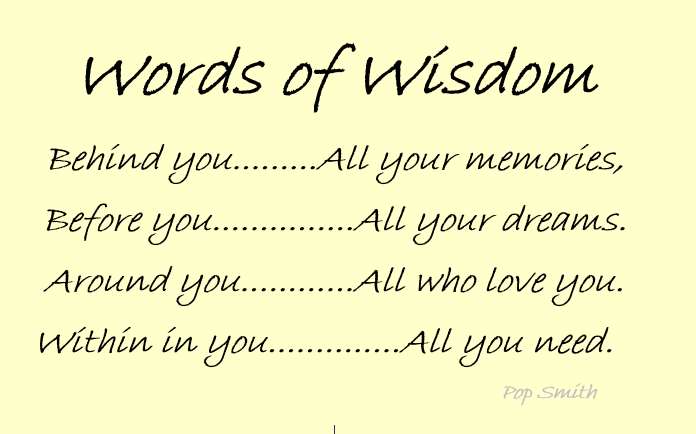 Words of Wisdom
Behind you.........All your memories,
Before you...............All your dreams.
Around you............All who love you.
Within in you..............All you need.
Pop Smith